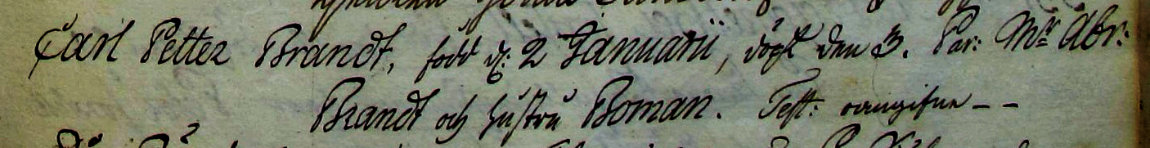 Carl Petter Brandt, född d: 2 Januarii, döpt den 3. Par: Mr Abr:
Brandt och hustru Boman. Test: oangifne - -